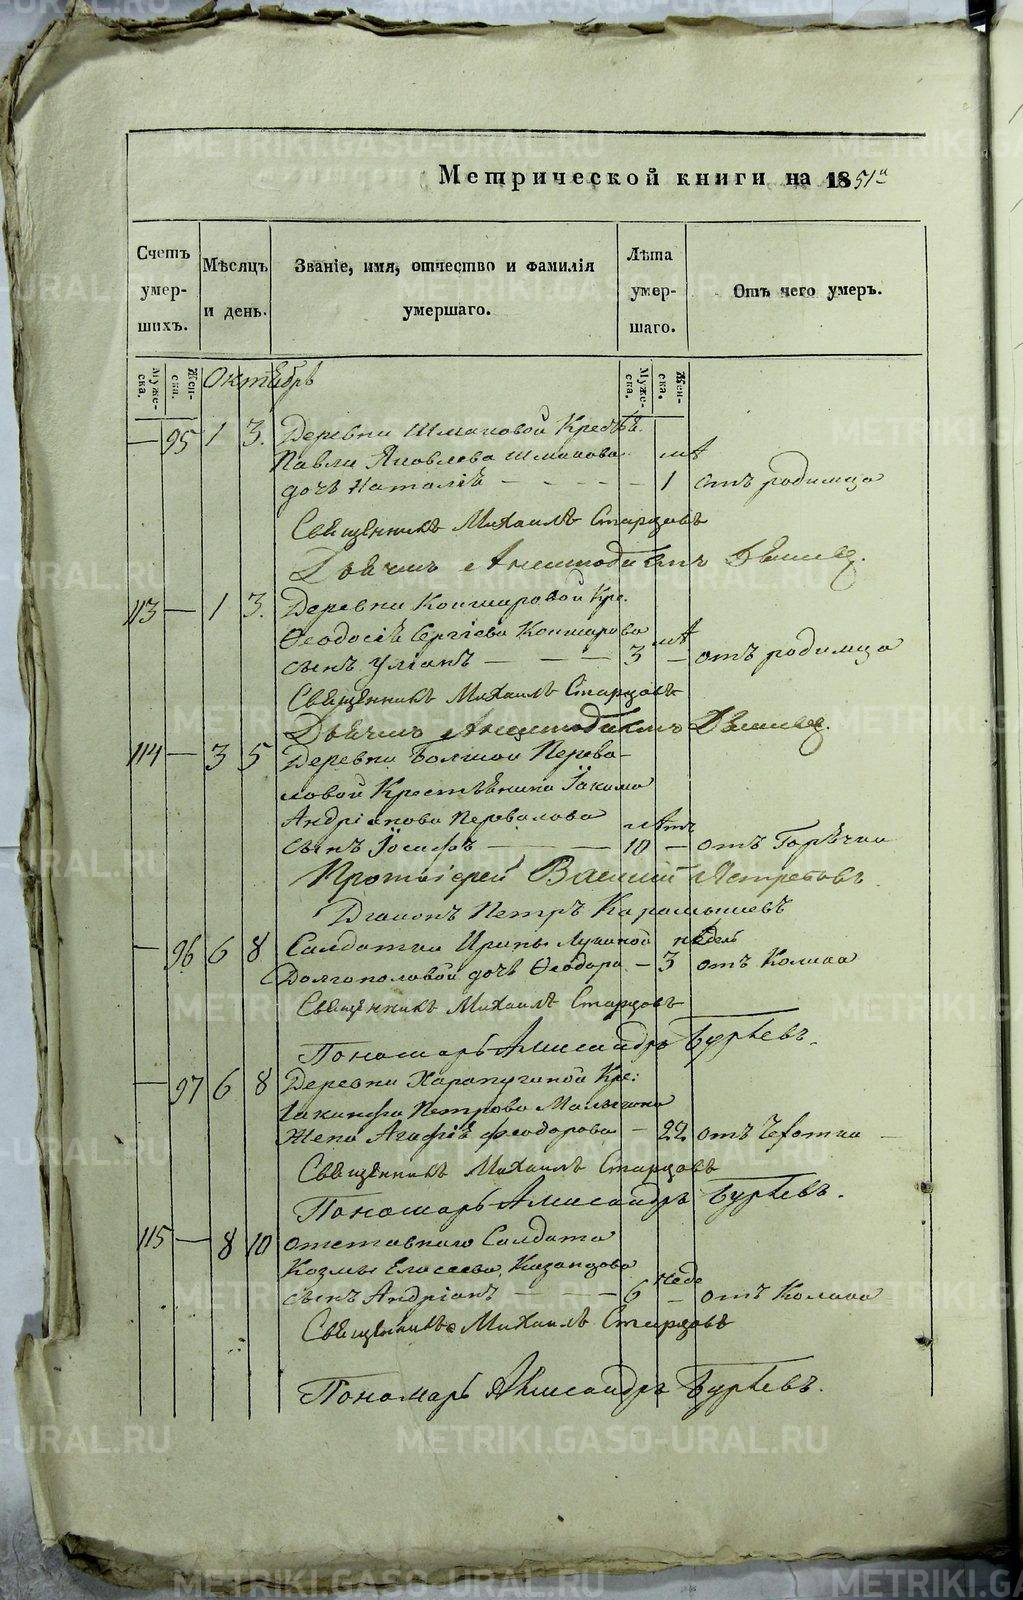 Метрической книги на 1851й
Счетъ умершихъ.
Мѣсяцъ и день.
Званіе, имя, отчество и фамилія умершаго.
Лѣта умершаго.
Отъ чего умеръ.
Мужеска. Женска. Октябрь Мужеска. Женска.
— 95 1 3. Деревни Шмаковой Крест.
Павла Яковлева Шмакова
дочь Наталія — — — — 1 отъ родимца
Священникъ Михаилъ Старцовъ
113 — 1 3. Деревни Коншаровой Кре.
Ѳеодосія Сергіева Коншарова
сынъ Уліанъ — — — 3 — отъ родимца
Священникъ Михаилъ Старцовъ
114 — 3 5 Деревни Болшой Перева-
ловой Крестьянина Іакима
Андріанова Первалова лѣтъ
сынъ Іосифъ — — — 10 — отъ Горячки
Протоіерей Василій Ястребовъ
Діаконъ Петръ Карамышевъ
— 96 6 8 Салдатки Ирины недель
Долгополовой дочь Ѳеодора — 3 отъ Колика
Священникъ Михаилъ Старцовъ
Пономарь Александръ
— 97 6 8 Деревни Харапугиной Кре:
Іакинфа Петрова
жена Агафія Феодорова — 22 отъ Чехотки —
Священникъ Михаилъ Старцовъ
Пономарь Александръ
115 — 8 10 отставнаго Салдата
Козмы Елисеева Казанцова неде
сынъ Андріанъ — — — 6 — отъ Колика
Священникъ Михаилъ Старцовъ
Пономарь Александръ